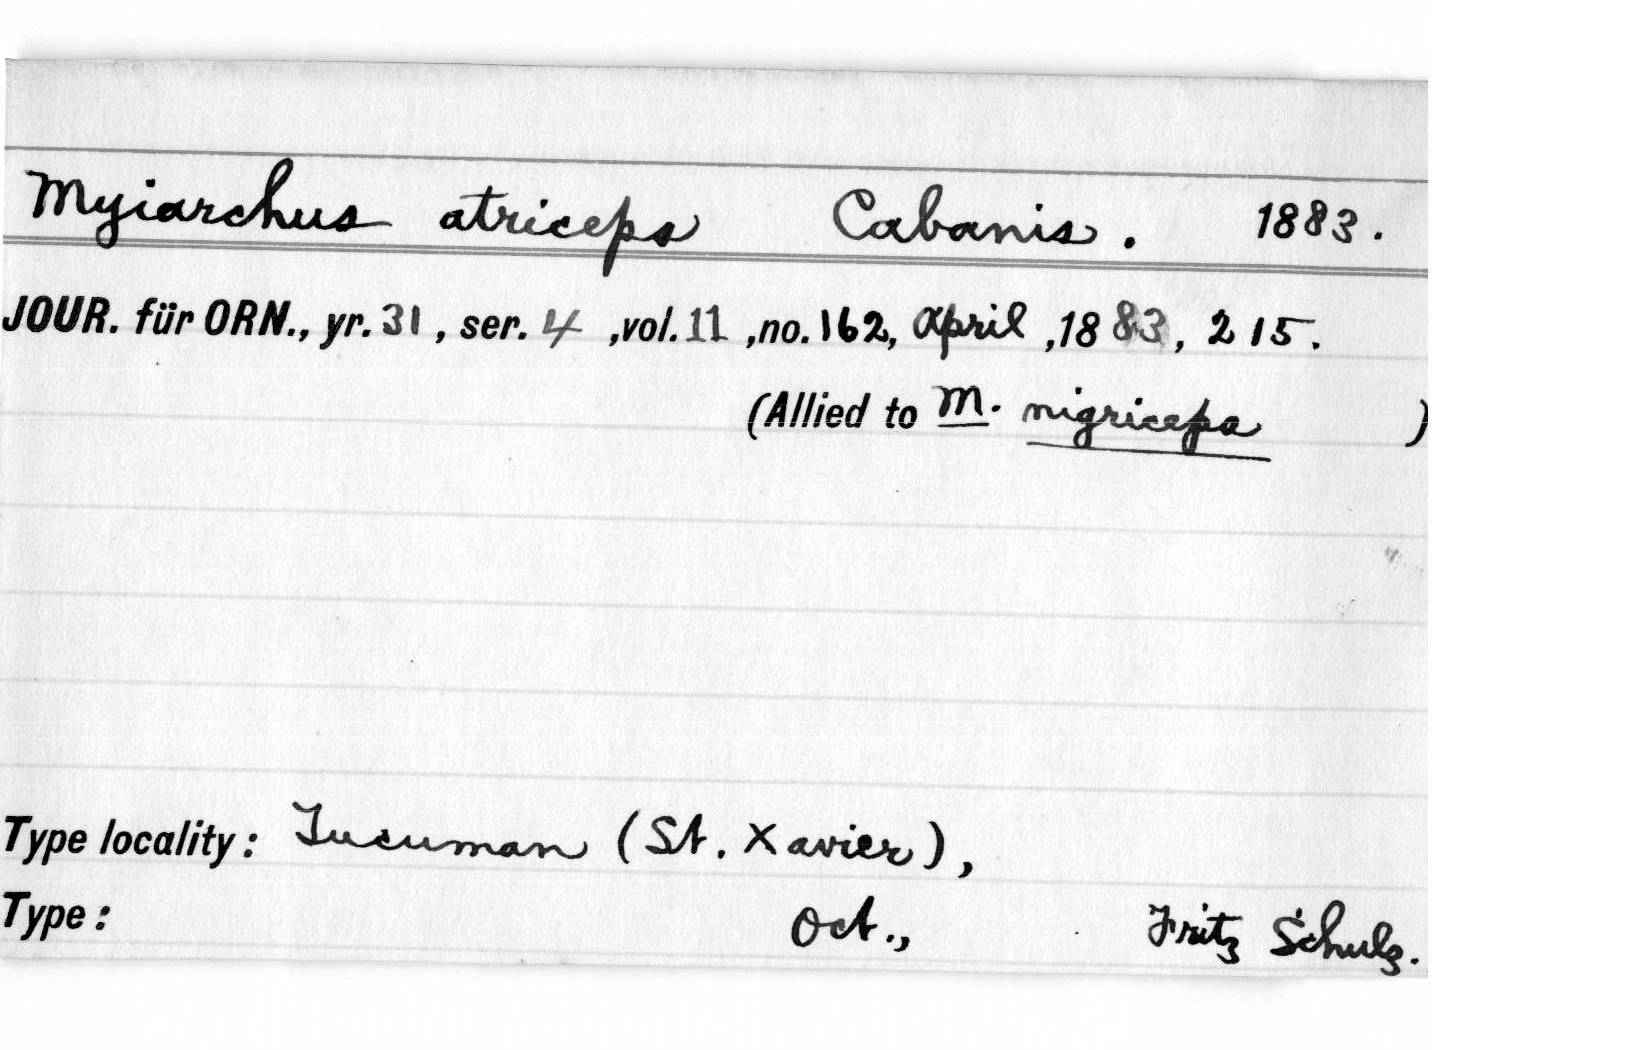 Myiarchus atriceps Cabanis. 1883.
JOUR. für ORN., yr. 31, ser. 4, vol. 11, no. 162, April, 1883, 215.
(Allied to M. nigriceps )
Type locality: Tucuman (St. Xavier),
Type: Oct., Fritz Schulz.